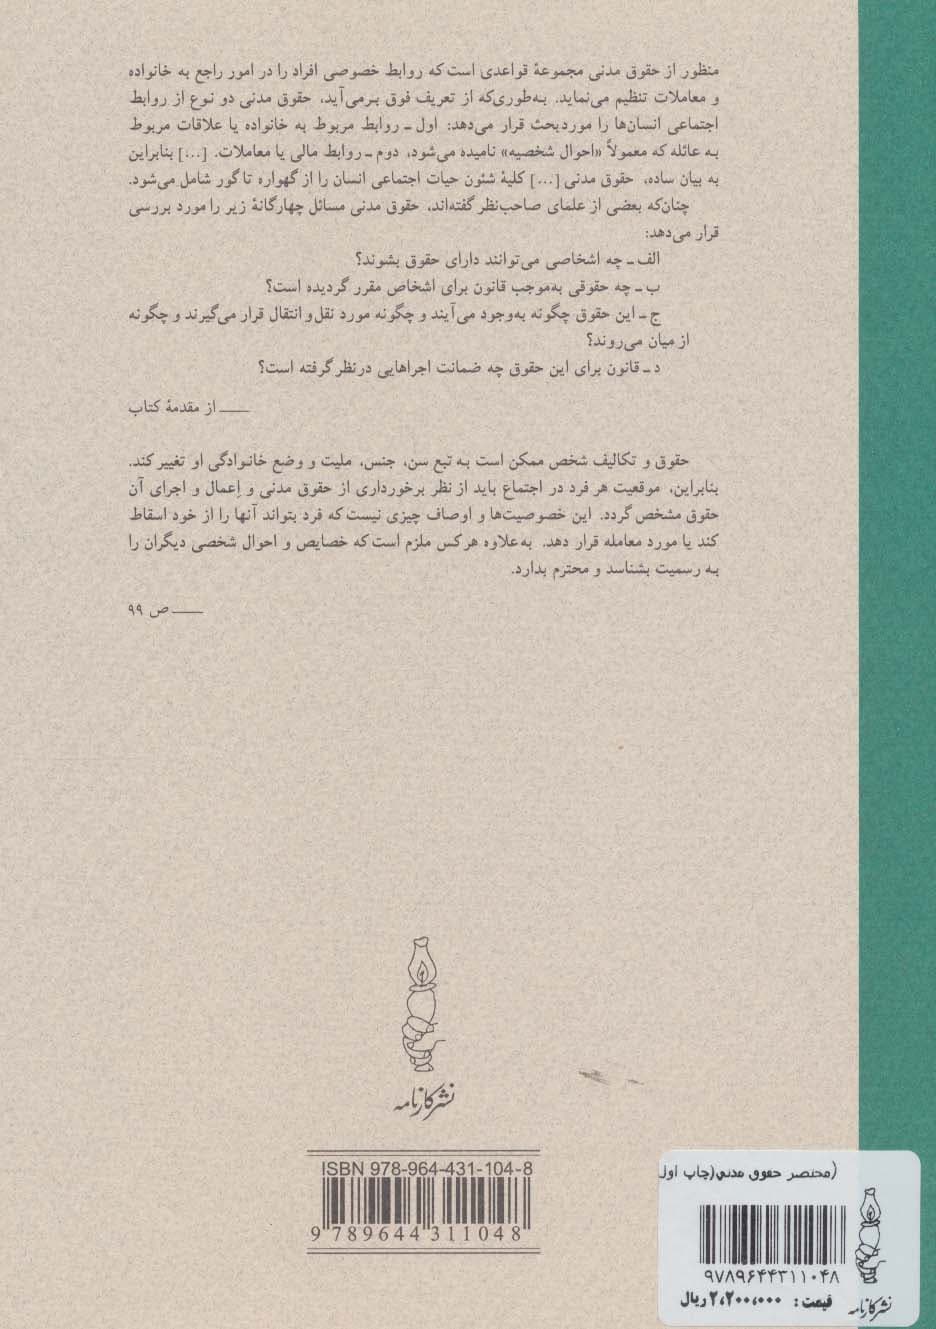 منظور از حقوق مدنی مجموعهٔ قواعدی است که روابط خصوصی افراد را در امور راجع به خانواده
و معاملات تنظیم می‌نماید. به‌طوری‌که از تعریف فوق برمی‌آید، حقوق مدنی دو نوع از روابط
اجتماعی انسان‌ها را مورد بحث قرار می‌دهد: اول ـ روابط مربوط به خانواده یا علاقات مربوط
به عائله که معمولاً «احوال شخصیه» نامیده می‌شود، دوم ـ روابط مالی یا معاملات. [...] بنابراین
به بیان ساده، حقوق مدنی [...] کلیهٔ شئون حیات اجتماعی انسان را از گهواره تا گور شامل می‌شود.
چنان‌که بعضی از علمای صاحب‌نظر گفته‌اند، حقوق مدنی مسائل چهارگانهٔ زیر را مورد بررسی
قرار می‌دهد:
الف ـ چه اشخاصی می‌توانند دارای حقوق بشوند؟
ب ـ چه حقوقی به‌موجب قانون برای اشخاص مقرر گردیده است؟
ج ـ این حقوق چگونه به‌وجود می‌آیند و چگونه مورد نقل و انتقال قرار می‌گیرند و چگونه
از میان می‌روند؟
د ـ قانون برای این حقوق چه ضمانت اجراهایی در نظر گرفته است؟
ـــــ از مقدمهٔ کتاب
حقوق و تکالیف شخص ممکن است به تبع سن، جنس، ملیت و وضع خانوادگی او تغییر کند.
بنابراین، موقعیت هر فرد در اجتماع باید از نظر برخورداری از حقوق مدنی و اِعمال و اجرای آن
حقوق مشخص گردد. این خصوصیت‌ها و اوصاف چیزی نیست که فرد بتواند آنها را از خود اسقاط
کند یا مورد معامله قرار دهد. به‌علاوه هر کس ملزم است که خصایص و احوال شخصی دیگران را
به رسمیت بشناسد و محترم بدارد.
ـــــ ص ۹۹
نشر کارنامه
ISBN 978-964-431-104-8
9 789644 311048
(مختصر حقوق مدنی(چاپ اول
۹۷۸۹۶۴۴۳۱۱۰۴۸
قیمت : ۲،۲۰۰،۰۰۰ ریال
نشر کارنامه